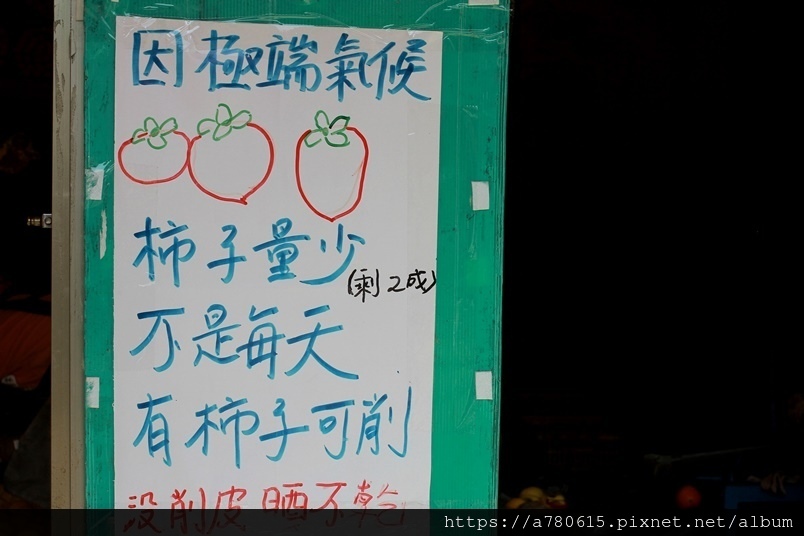 因極端氣候
柿子量少
(剩2成)
不是每天
有柿子可削
沒削皮晒不乾
https://a780615.pixnet.net/album